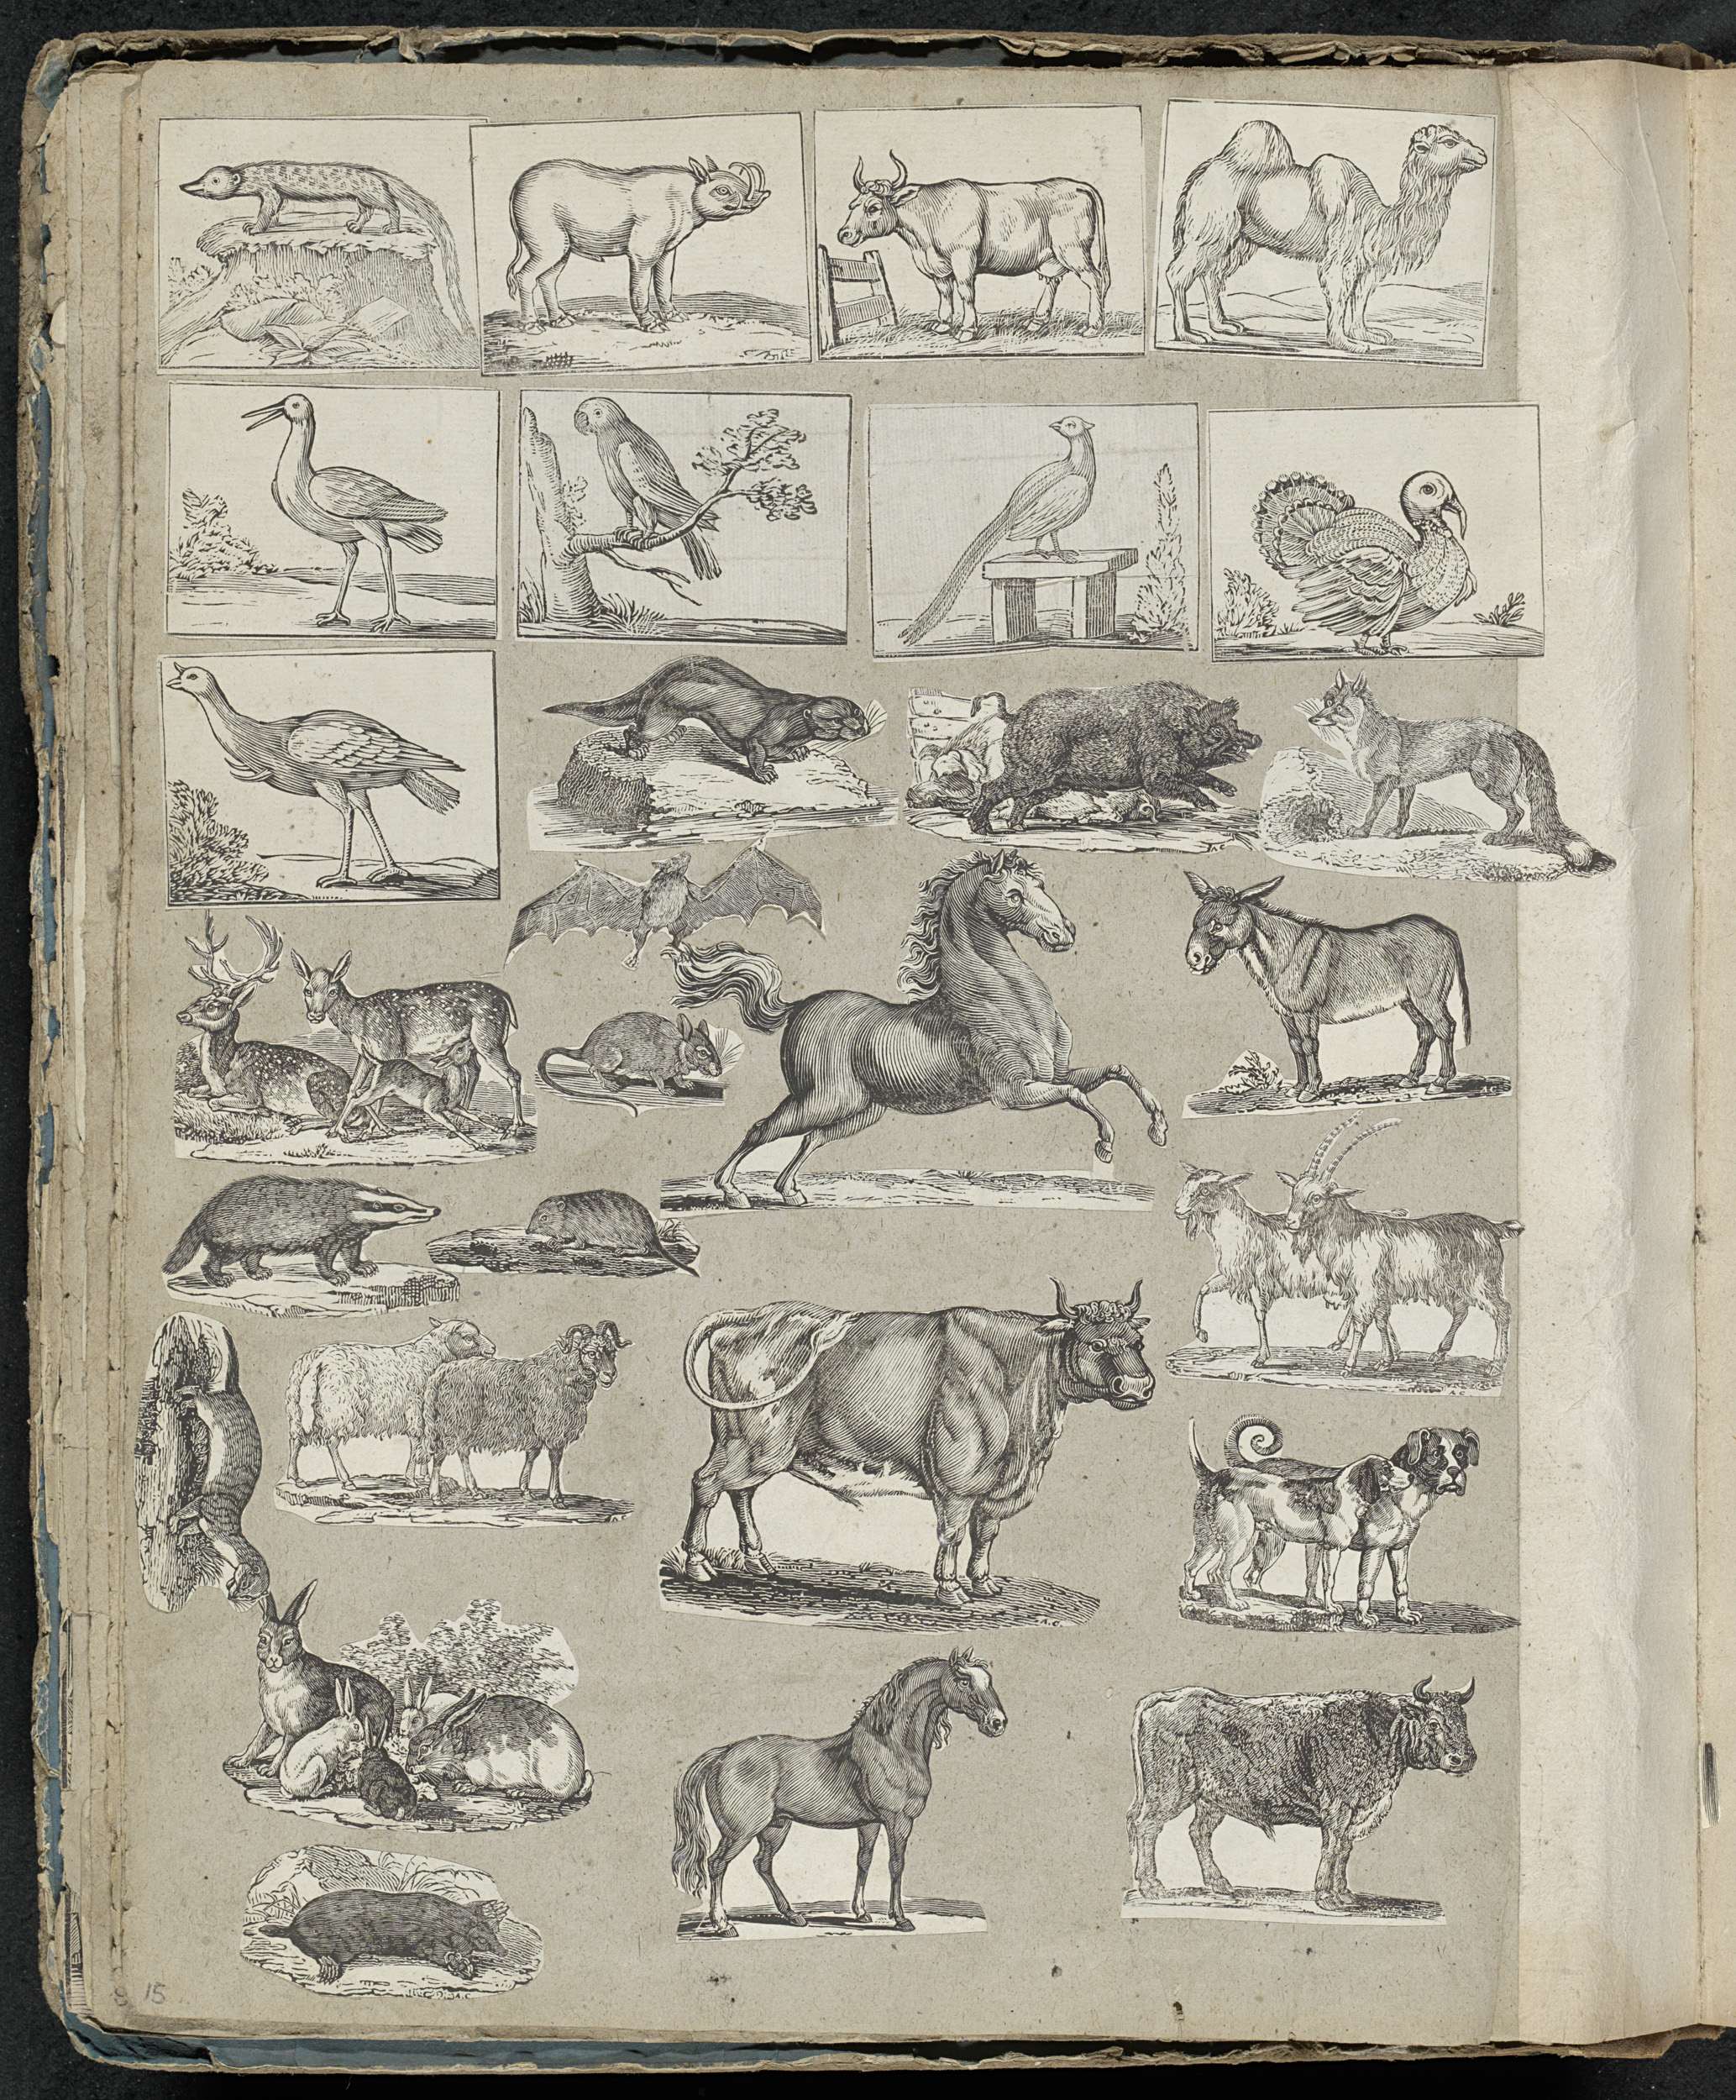 A.C
A.C
A.C.
A.C
8 15